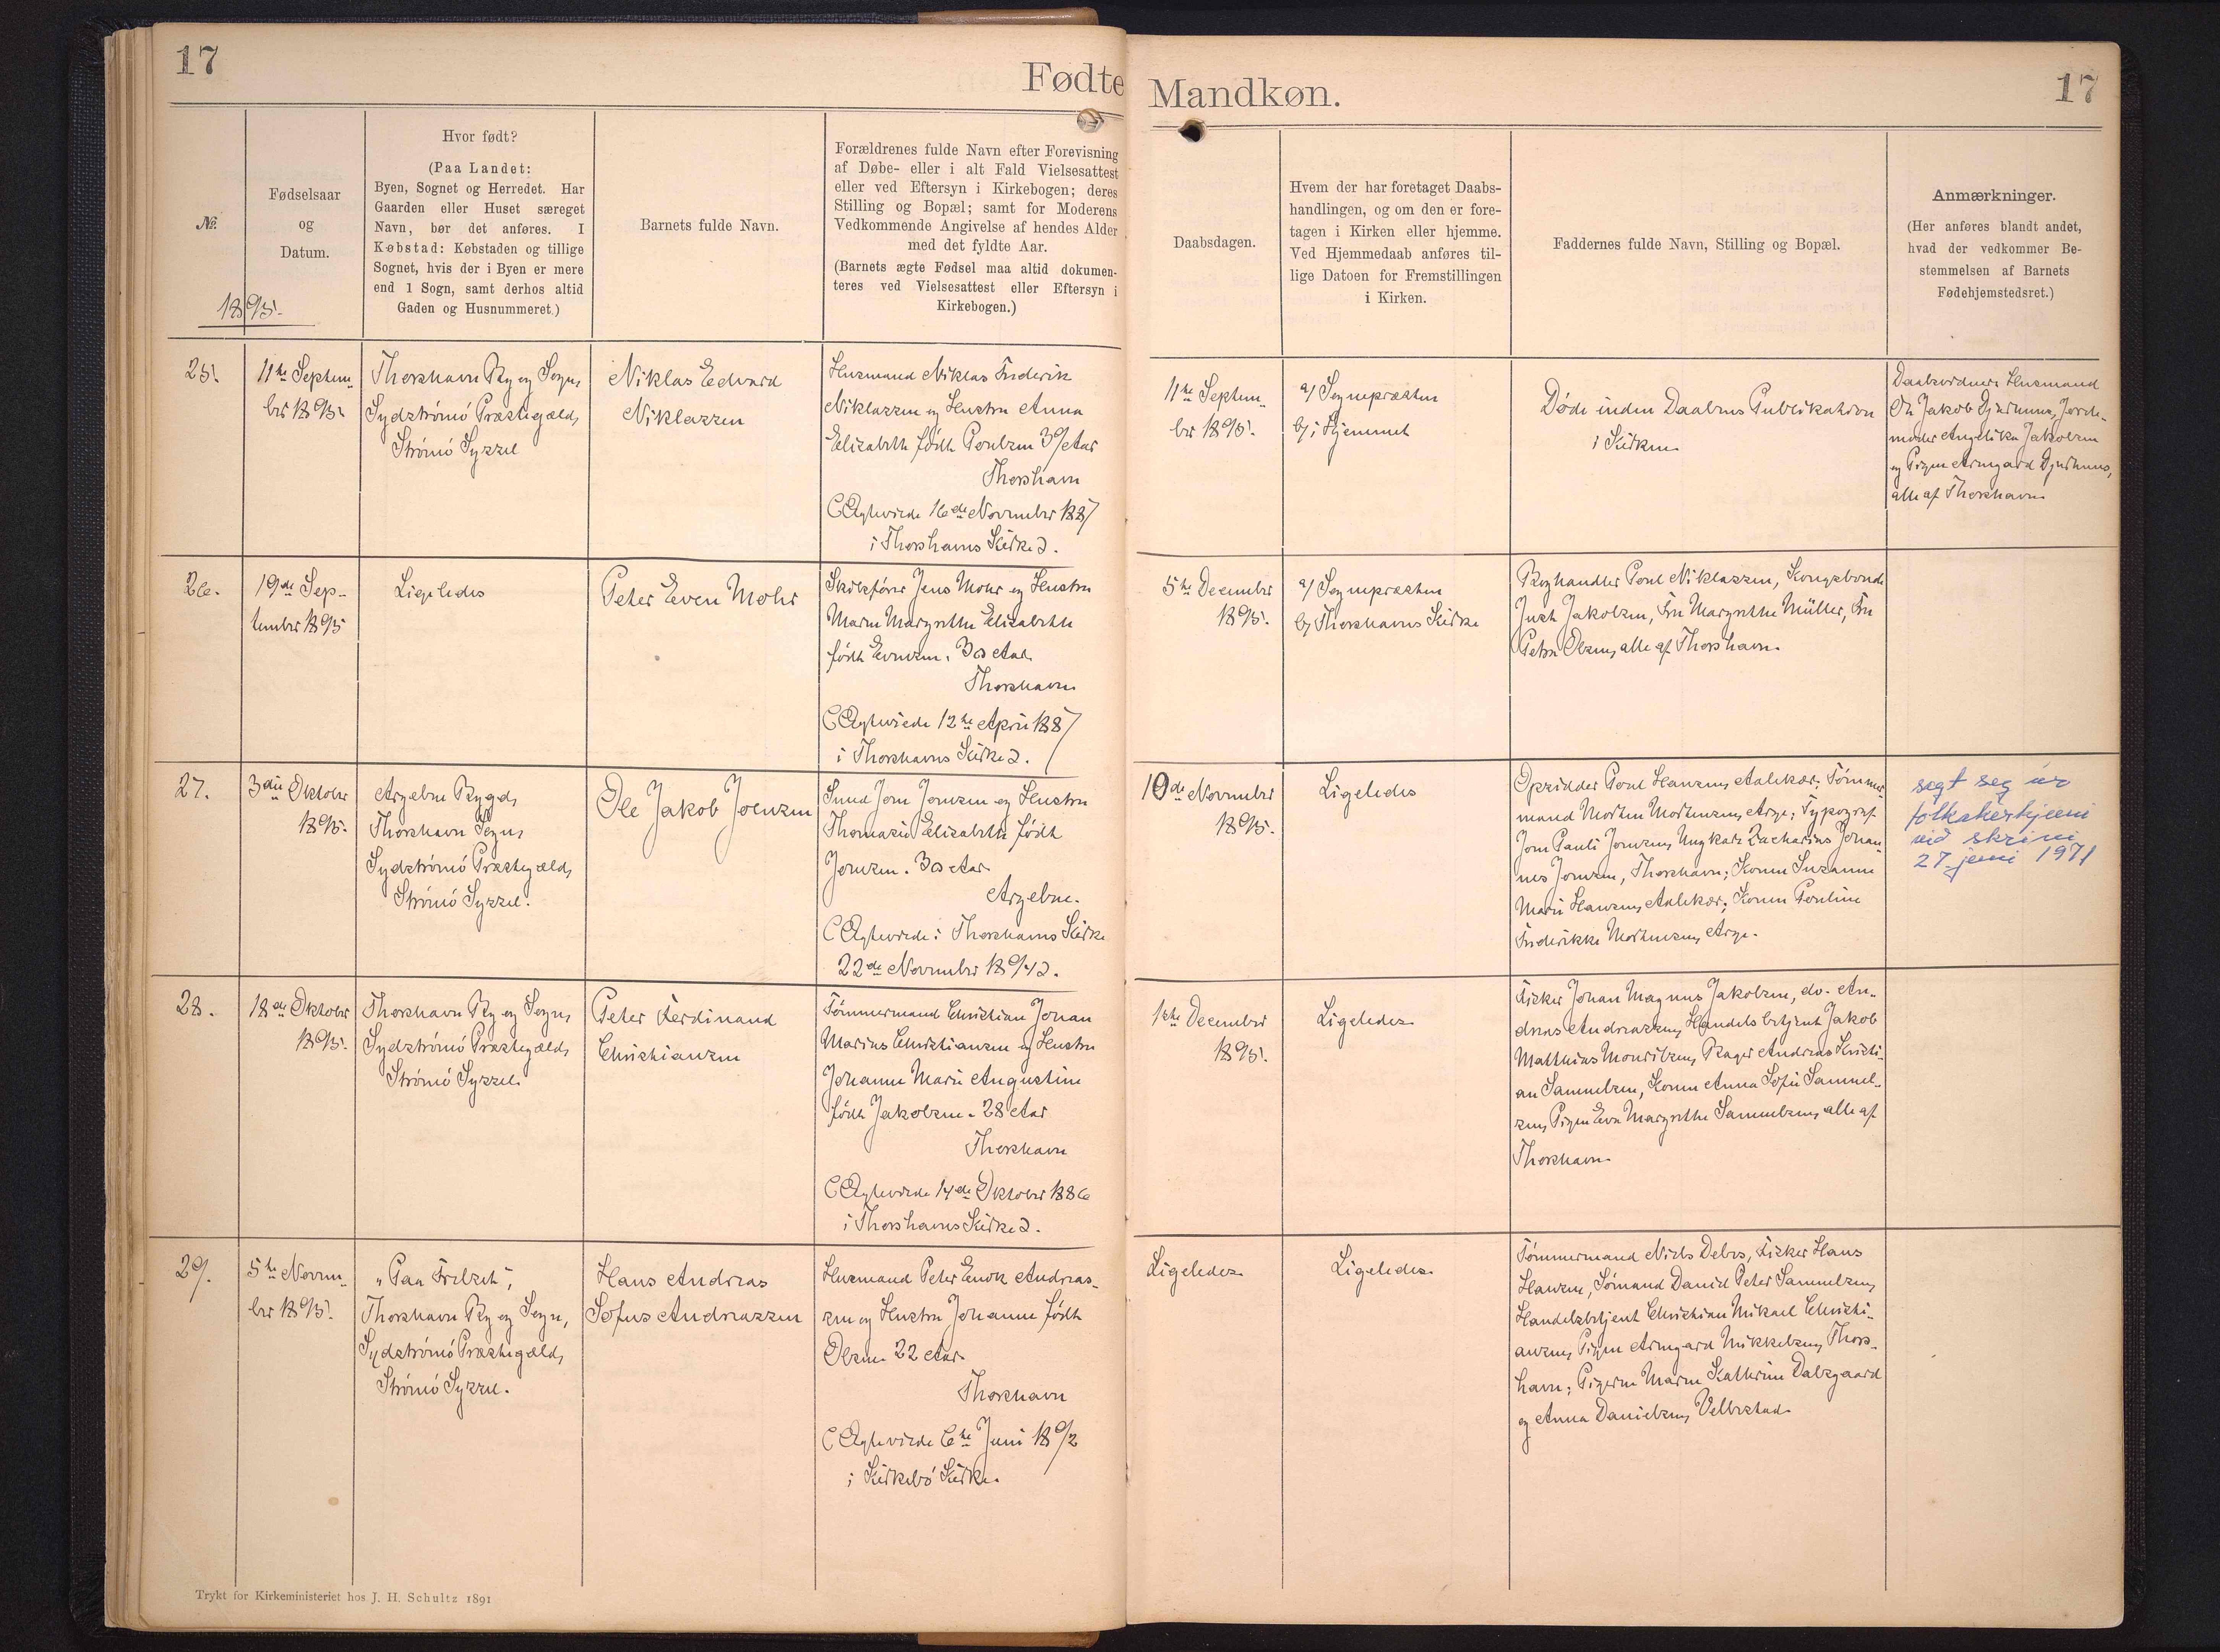 17
Fødte
Mandkøn.
17
№.
Fødselsaar
og
Datum.
1895.
Hvor født?
(Paa Landet:
Byen, Sognet og Herredet. Har
Gaarden eller Huset særeget
Navn, bør det anføres. I
Købstad: Købstaden og tillige
Sognet, hvis der i Byen er mere
end 1 Sogn, samt derhos altid
Gaden og Husnummeret.)
Barnets fulde Navn.
Forældrenes fulde Navn efter Forevisning
af Døbe- eller i alt Fald Vielsesattest
eller ved Eftersyn i Kirkebogen; deres
Stilling og Bopæl; samt for Moderens
Vedkommende Angivelse af hendes Alder
med det fyldte Aar.
(Barnets ægte Fødsel maa altid dokumen-
teres ved Vielsesattest eller Eftersyn i
Kirkebogen.)
Daabsdagen.
Hvem der har foretaget Daabs-
handlingen, og om den er fore-
tagen i Kirken eller hjemme.
Ved Hjemmedaab anføres til-
lige Datoen for Fremstillingen
i Kirken.
Faddernes fulde Navn, Stilling og Bopæl.
Anmærkninger.
(Her anføres blandt andet,
hvad der vedkommer Be-
stemmelsen af Barnets
Fødehjemstedsret.)
25.
11te Septem-
ber 1895.
Thorshavn By og Sogn,
Sydstrømø Præstegæld,
Strømø Syssel
Niklas Edvard
Niklassen
Husmand Niklas Frederik
Niklassen og Hustru Anna
Elisabeth født Poulsen 39 Aar
Thorshavn
(Ægteviede 16de November 1887
i Thorshavns Kirke).
11te Septem-
ber 1895.
a) Sognepræsten
b) i Hjemmet
Døde inden Daabens Publikation
i Kirken
Daabsvidner: Husmand
Ole Jakob Djurhuus, Jorde-
moder Angelika Jakobsen
og Pigen Armgard Djurhuus,
alle af Thorshavn
26.
19de Sep-
tember 1895
Ligeledes
Peter Even Mohr
Skibsfører Jens Mohr og Hustru
Maren Margrethe Elisabeth
født Evensen. 33 Aar.
Thorshavn
(Ægteviede 12te April 1887
i Thorshavns Kirke).
5te December
1895.
a) Sognepræsten
b) Thorshavns Kirke
Boghandler Poul Niklassen, Kongsbonde
Just Jakobsen, Fru Margrethe Müller, Fru
Petra Olsen, alle af Thorshavn.
27.
3die Oktober
1895.
Argebne Bygd,
Thorshavn Sogn,
Sydstrømø Præstegæld,
Strømø Syssel.
Ole Jakob Joensen
Smed Joen Joensen og Hustru
Thomasia Elisabeth født
Joensen. 33 Aar.
Argebne.
(Ægteviede i Thorshavns Kirke
22de November 1894).
10de November
1895.
Ligeledes
Opsidder Poul Hansen, Aalekær; Tømmer-
mand Morten Mortensen, Arge; Typograf
Joen Pauli Joensen, Ungkarl Zacharias Johan-
nes Joensen, Thorshavn; Konen Susanne
Marie Hansen, Aalekær; Konen Pouline
Frederikke Mortensen, Arge.
sagt seg úr
fólkakirkjuni
við skrivi
27. juni 1971
28.
18de Oktober
1895.
Thorshavn By og Sogn,
Sydstrømø Præstegæld,
Strømø Syssel.
Peter Ferdinand
Christiansen
Tømmermand Christian Johan
Marius Christiansen og Hustru
Johanne Marie Augustine
født Jakobsen. 28 Aar
Thorshavn
(Ægteviede 14de Oktober 1886
i Thorshavns Kirke).
1ste December
1895.
Ligeledes
Fisker Johan Magnus Jakobsen, do. An-
dreas Andreassen, Handelsbetjent Jakob
Matthias Mouritsen, Bager Andreas Kristi-
an Samuelsen, Konen Anna Sofie Samuel-
sen, Pigen Eva Margrethe Samuelsen, alle af
Thorshavn.
29.
5te Novem-
ber 1895.
"Paa Frelsen",
Thorshavn By og Sogn,
Sydstrømø Præstegæld,
Strømø Syssel.
Hans Andreas
Sofus Andreassen
Husmand Peter Enok Andreas-
sen og Hustru Johanne født
Olsen. 22 Aar.
Thorshavn
(Ægteviede 6te Juni 1892
i Kirkebø Kirke.
Ligeledes
Ligeledes.
Tømmermand Niels Debes, Fisker Hans
Hansen, Sømand Daniel Peter Samuelsen,
Handelsbetjent Christian Mikael Christi-
ansen, Pigen Armgard Mikkelsen, Thors-
havn; Pigerne Maren Kathrine Dalsgaard
og Anna Danielsen, Velbestad.
Trykt for Kirkeministeriet hos J. H. Schultz 1891